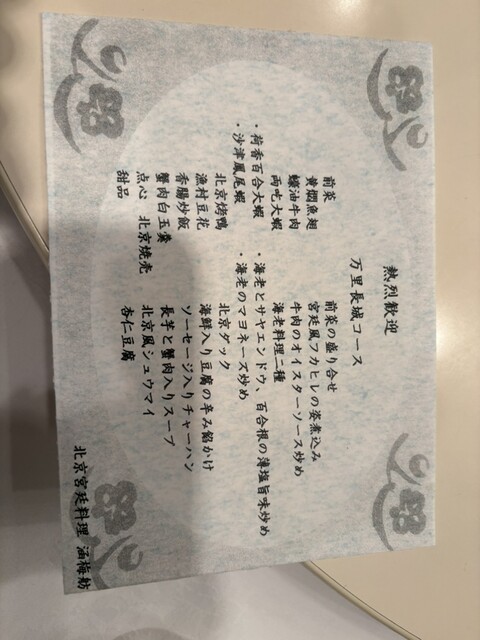 熱烈歓迎
万里長城コース
前菜 前菜の盛り合せ
黄燜魚翅 宮廷風フカヒレの姿煮込み
蠔油牛肉 牛肉のオイスターソース炒め
両吃大蝦 海老料理二種
・荷香百合大蝦 ・海老とサヤエンドウ、百合根の薄塩旨味炒め
・沙津鳳尾蝦 ・海老のマヨネーズ炒め
北京烤鴨 北京ダック
漁村豆花 海鮮入り豆腐の辛み餡かけ
香腸炒飯 ソーセージ入りチャーハン
蟹肉白玉羹 長芋と蟹肉入りスープ
点心 北京焼売 北京風シュウマイ
甜品 杏仁豆腐
北京宮廷料理 涵梅舫